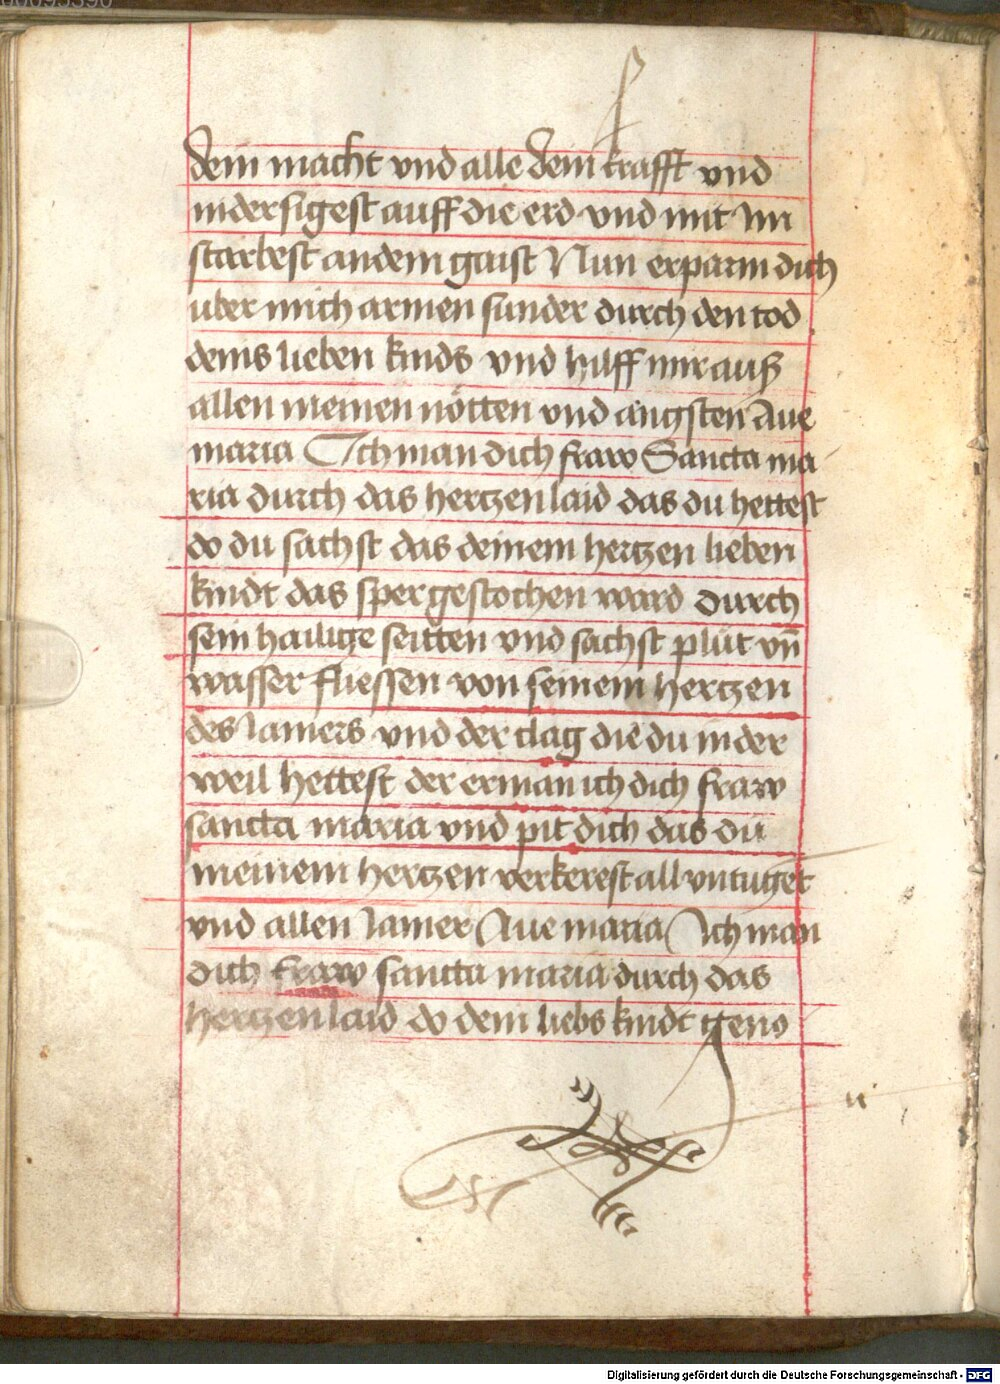 dein macht vnd alle dein krafft vnd
nidersigest auff die erd vnd mit Im
starbest an dem gaist Nun erparm dich
uber mich armen sunder durch den tod
deins lieben kinds vnd hilff mir auß
allen meinen nötten vnd ängsten Aue
maria Ich man dich fraw Sancta ma
ria durch das hertzenlaid das du hettest
do du sachst das deinem hertzen lieben
kindt das sper gestochen ward durch
sein hailige seitten vnd sachst plüt vn̄
wasser fliessen von seinem hertzen
des Iamers vnd der clag die du in der
weil hettest der erman ich dich fraw
sancta maria vnd pit dich das du
meinem hertzen verkerest all vntuget
vnd allen Iamer Aue maria Ich man
dich fraw sancta maria durch das
hertzenlaid do dein liebs kindt geno
Digitalisierung gefördert durch die Deutsche Forschungsgemeinschaft - DFG